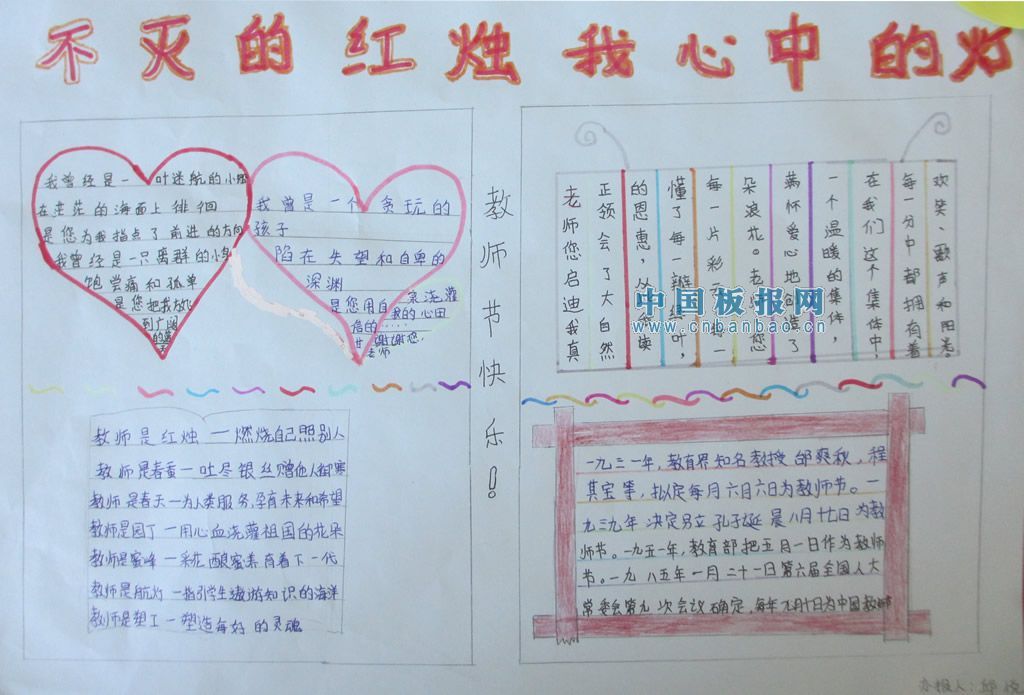 不灭的红烛 我心中的灯
我曾经是一叶迷航的小船
在茫茫的海面上徘徊
是您为我指点了前进的方向
我曾经是一只离群的小鸟
饱尝痛和孤单
是您把我放飞
到广阔
的蓝
我曾是一个贪玩的
孩子
陷在失望和自卑的
深渊
是您用自 来浇灌
信的 我的心田
谢谢您,
老师
教师节快乐!
老师您启迪我真
正领会了大自然
的恩惠,从
读
懂了每一瓣绿叶,
每一片彩
朵浪花。老师您
满怀爱心地创造了
一个温暖的集体,
在我们这个集体中,
每一分中都拥有着
欢笑、歌声和阳光。
中国板报网
www.cnbanbao.cn
教师是红烛一燃烧自己照别人
教师是春蚕一吐尽银丝赠他人御寒
教师是春天一为人类服务,孕育未来和希望
教师是园丁一用心血浇灌祖国的花朵
教师是蜜峰一采花酿蜜养育着下一代
教师是航灯一指引学生遨游知识的海洋
教师是塑工一塑造每好的灵魂
一九三一年,教育界知名教授邰爽秋,程
其宝等,拟定每月六月六日为教师节。一
九三九年决定另立孔子诞晨八月十七日为教
师节。一九五一年,教育部把五月一日作为教师
节。一九八五年一月二十一日第六届全国人大
常委会第九次会议确定,每年九月十日为中国教师节
办报人: